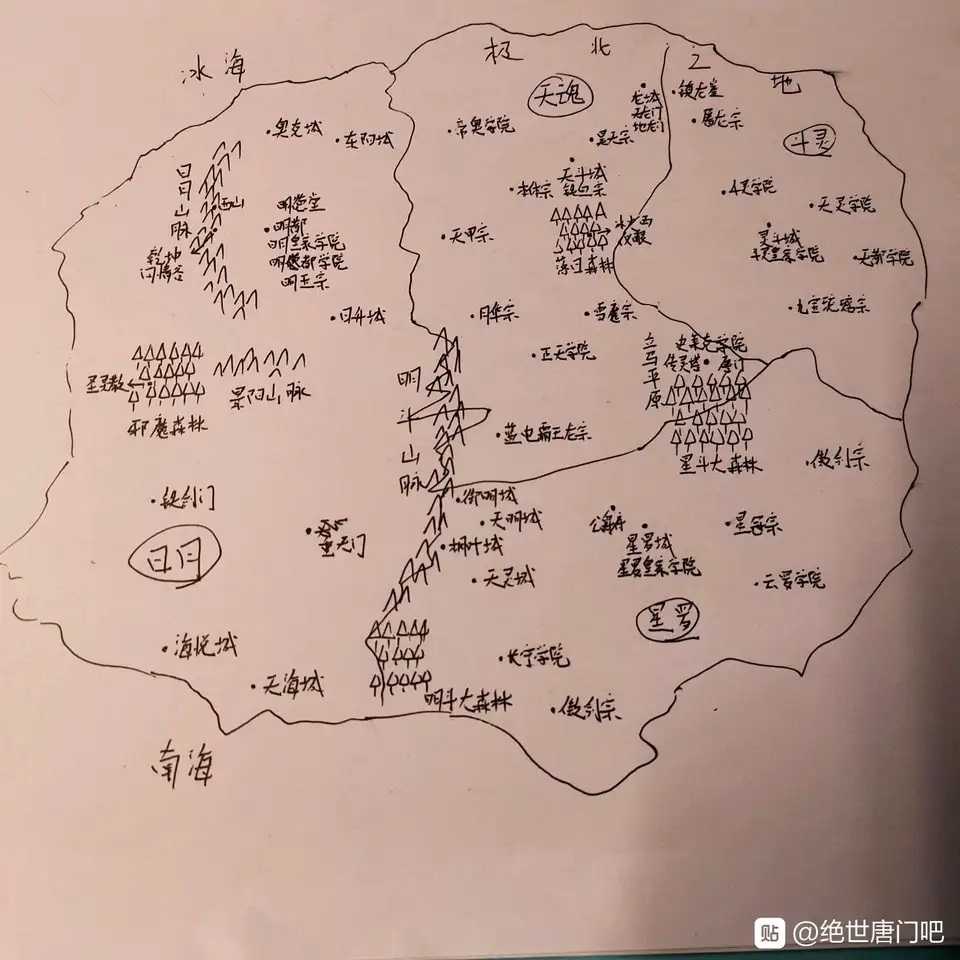 冰海
极北之地
天魂
斗灵
日月
星罗
南海
奥克城
东阿城
日月山脉
西山
乾坤
问情谷
明德堂
明都
明皇家学院
明都学院
明玉宗
日升城
圣灵教
邪魔森林
景阳山脉
铁剑门
天门
海悦城
天海城
帝奥学院
龙城
天龙门
地龙门
昊天宗
天斗城
本体宗
天甲宗
落日森林
月隼宗
雪魔宗
正天学院
蓝电霸王龙宗
明斗山脉
镇龙崖
屠龙宗
斗灵学院
天灵学院
灵斗城
斗灵皇家学院
天都学院
九宝琉璃宗
立马平原
史莱克学院
传灵塔
唐门
星斗大森林
傲剑宗
街明城
天明城
枫叶城
天灵城
星罗城
星罗皇家学院
星冠宗
云罗学院
长宁学院
明斗大森林
傲剑宗
贴 @绝世唐门吧